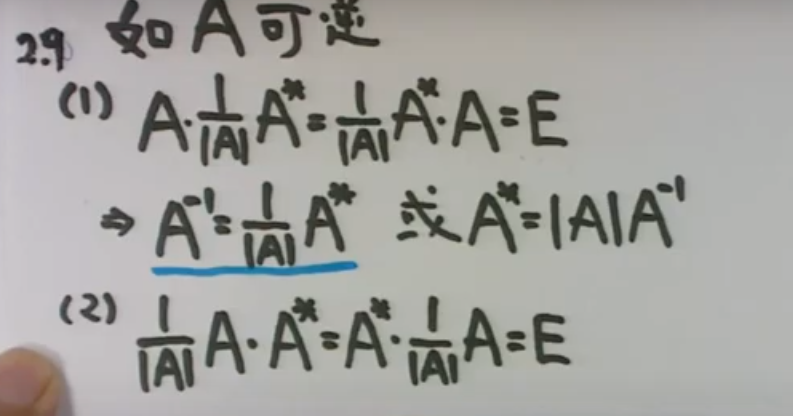 2.9 如A可逆
(1) A·1/|A| A*=1/|A| A*·A=E
⇒ A⁻¹=1/|A| A* 或 A*=|A|A⁻¹
(2) 1/|A| A·A*=A*·1/|A| A=E